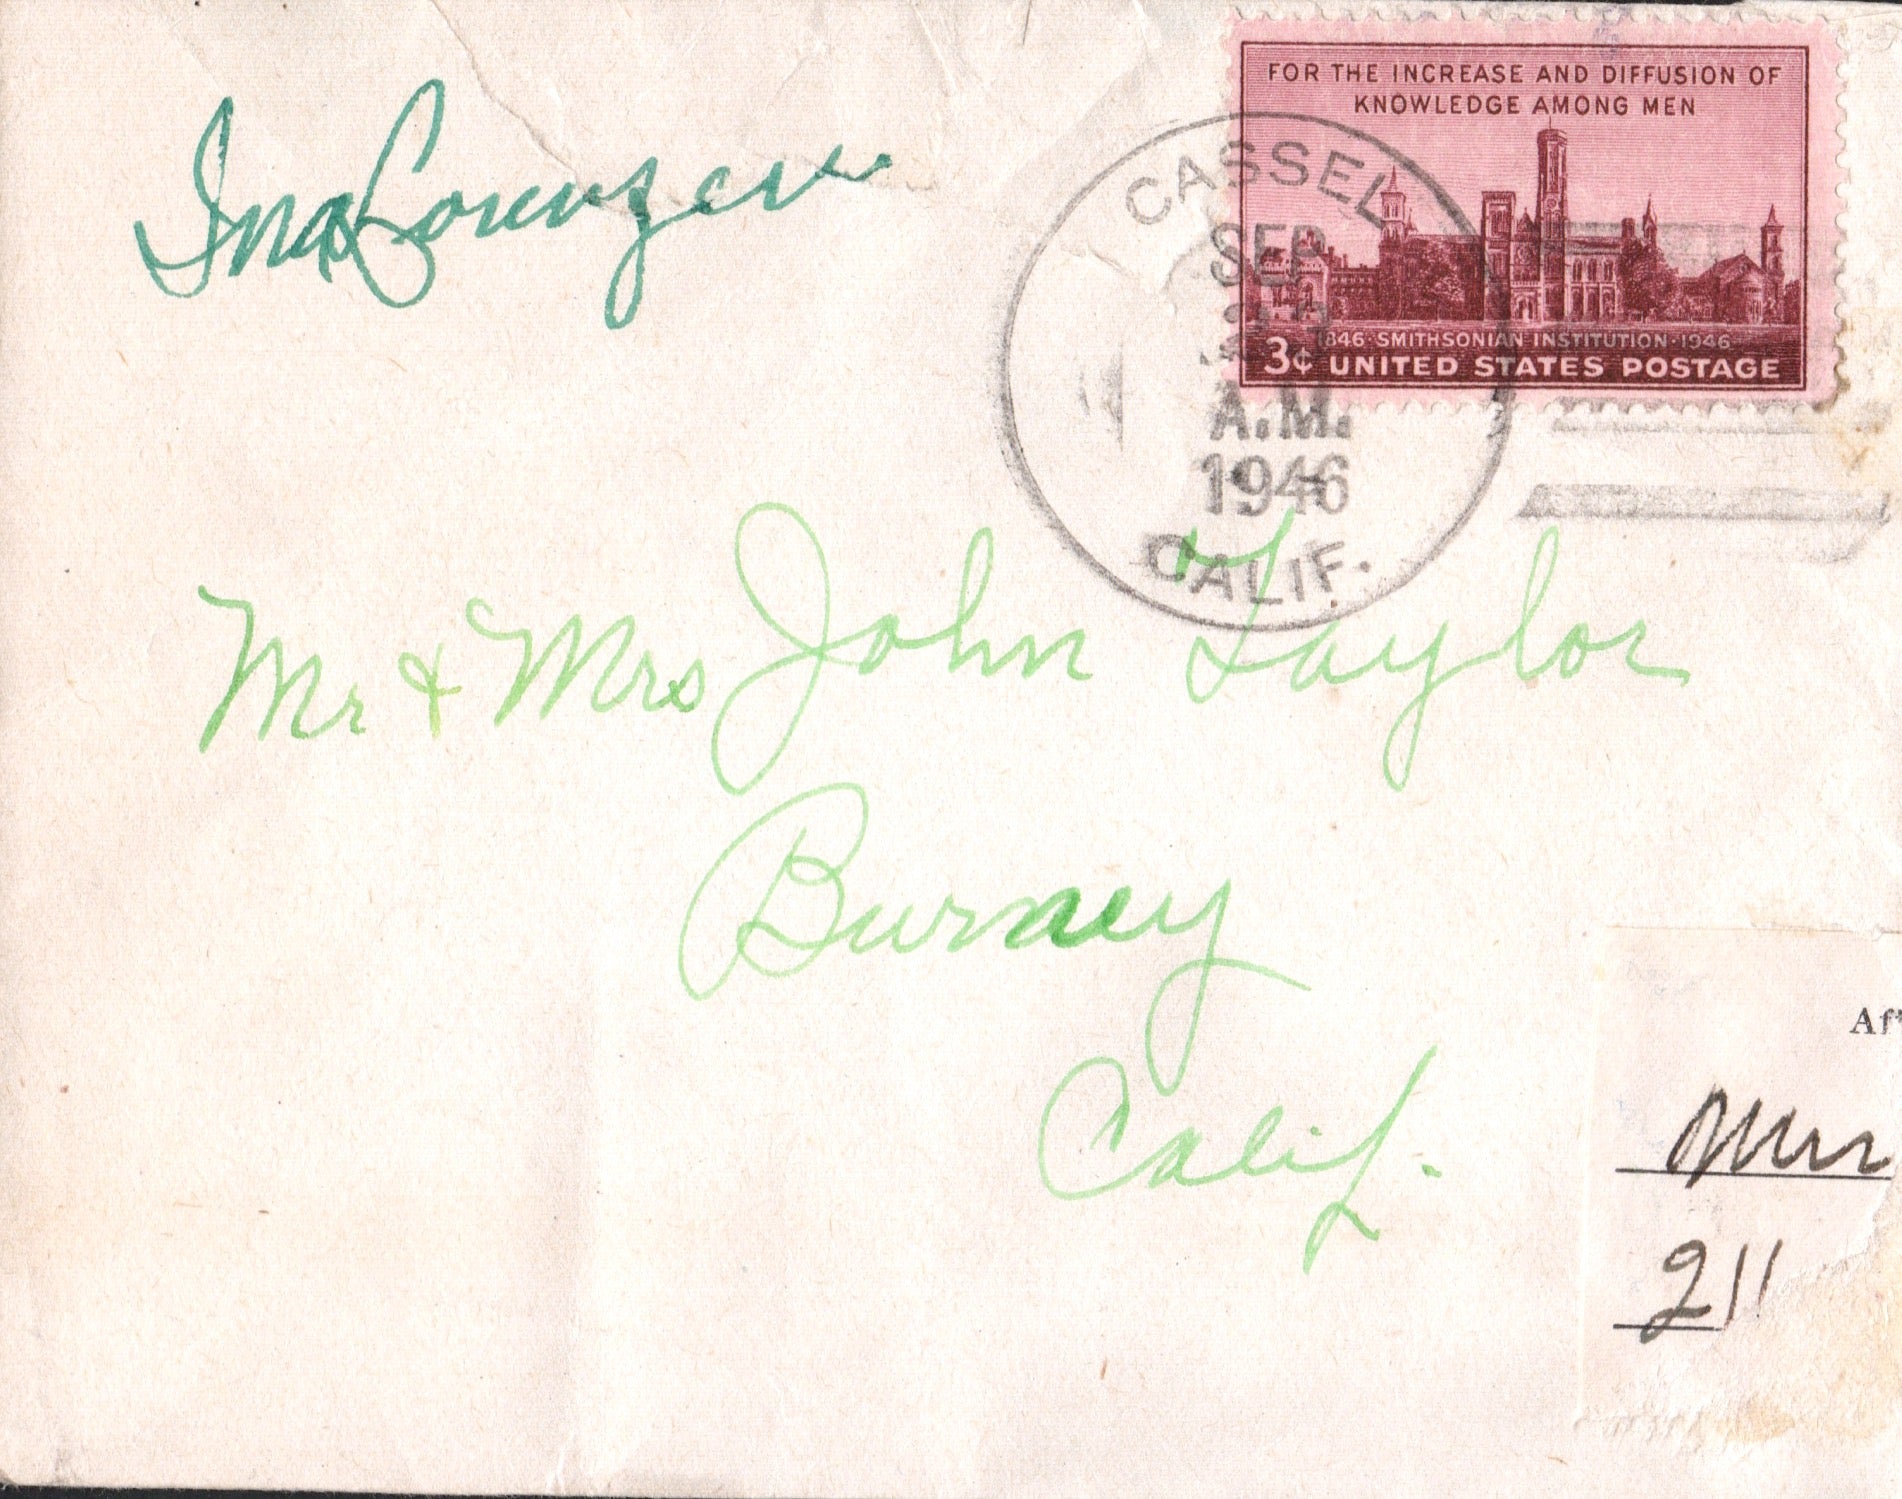 Ina Lorenzen
FOR THE INCREASE AND DIFFUSION OF
KNOWLEDGE AMONG MEN
1846 · SMITHSONIAN INSTITUTION · 1946
3¢ UNITED STATES POSTAGE
CASSEL
SEP
A.M.
1946
CALIF.
Mr & Mrs John Taylor
Burney
Calif.
Af
211